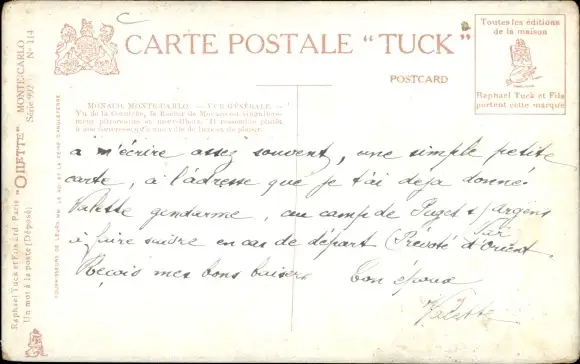 CARTE POSTALE "TUCK"
POSTCARD
Toutes les éditions
de la maison
Raphael Tuck et Fils
portent cette marque
MONACO, MONTE-CARLO. — VUE GÉNÉRALE. —
Vu de la Corniche, le Rocher de Monaco est singulière-
ment pittoresque et merveilleux. Il ressemble plutôt
à une forteresse qu'à une ville de luxe ou de plaisir.
Raphael Tuck et Fils Ltd. Paris "OILETTE" MONTE-CARLO
Un mot à la poste (Déposé) Série 992 No 114
FOURNISSEURS DE LEURS MM. LE ROI ET LA REINE D'ANGLETERRE
à m'écrire assez souvent, une simple petite
carte, à l'adresse que je t'ai deja donné.
Valette gendarme, au camp de Puget s/ argens
Var
à faire suivre en cas de départ (Prévoté d'Orient.
Reçois mes bons baisers Ton époux
Valette